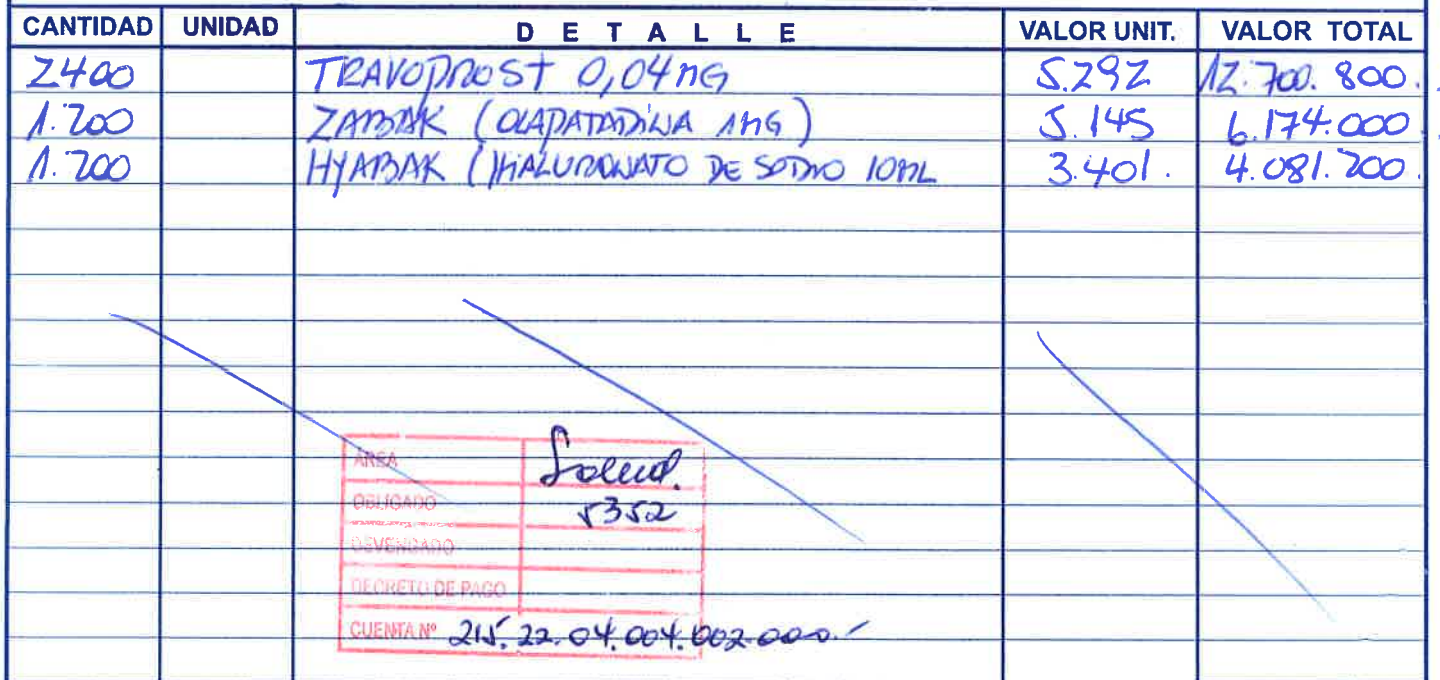 CANTIDAD UNIDAD DETALLE VALOR UNIT. VALOR TOTAL
2400 TRAVOPROST 0,04 MG 5.292 12.700.800.
1.200 ZABAK (OLAPATADINA 1MG) 5.145 6.174.000
1.200 HYABAK (HIALURONATO DE SODIO 10ML 3.401. 4.081.200.
AREA Salud.
OBLIGADO 5352
DEVENGADO
DECRETO DE PAGO
CUENTA Nº 215.22.04.004.002.000.-